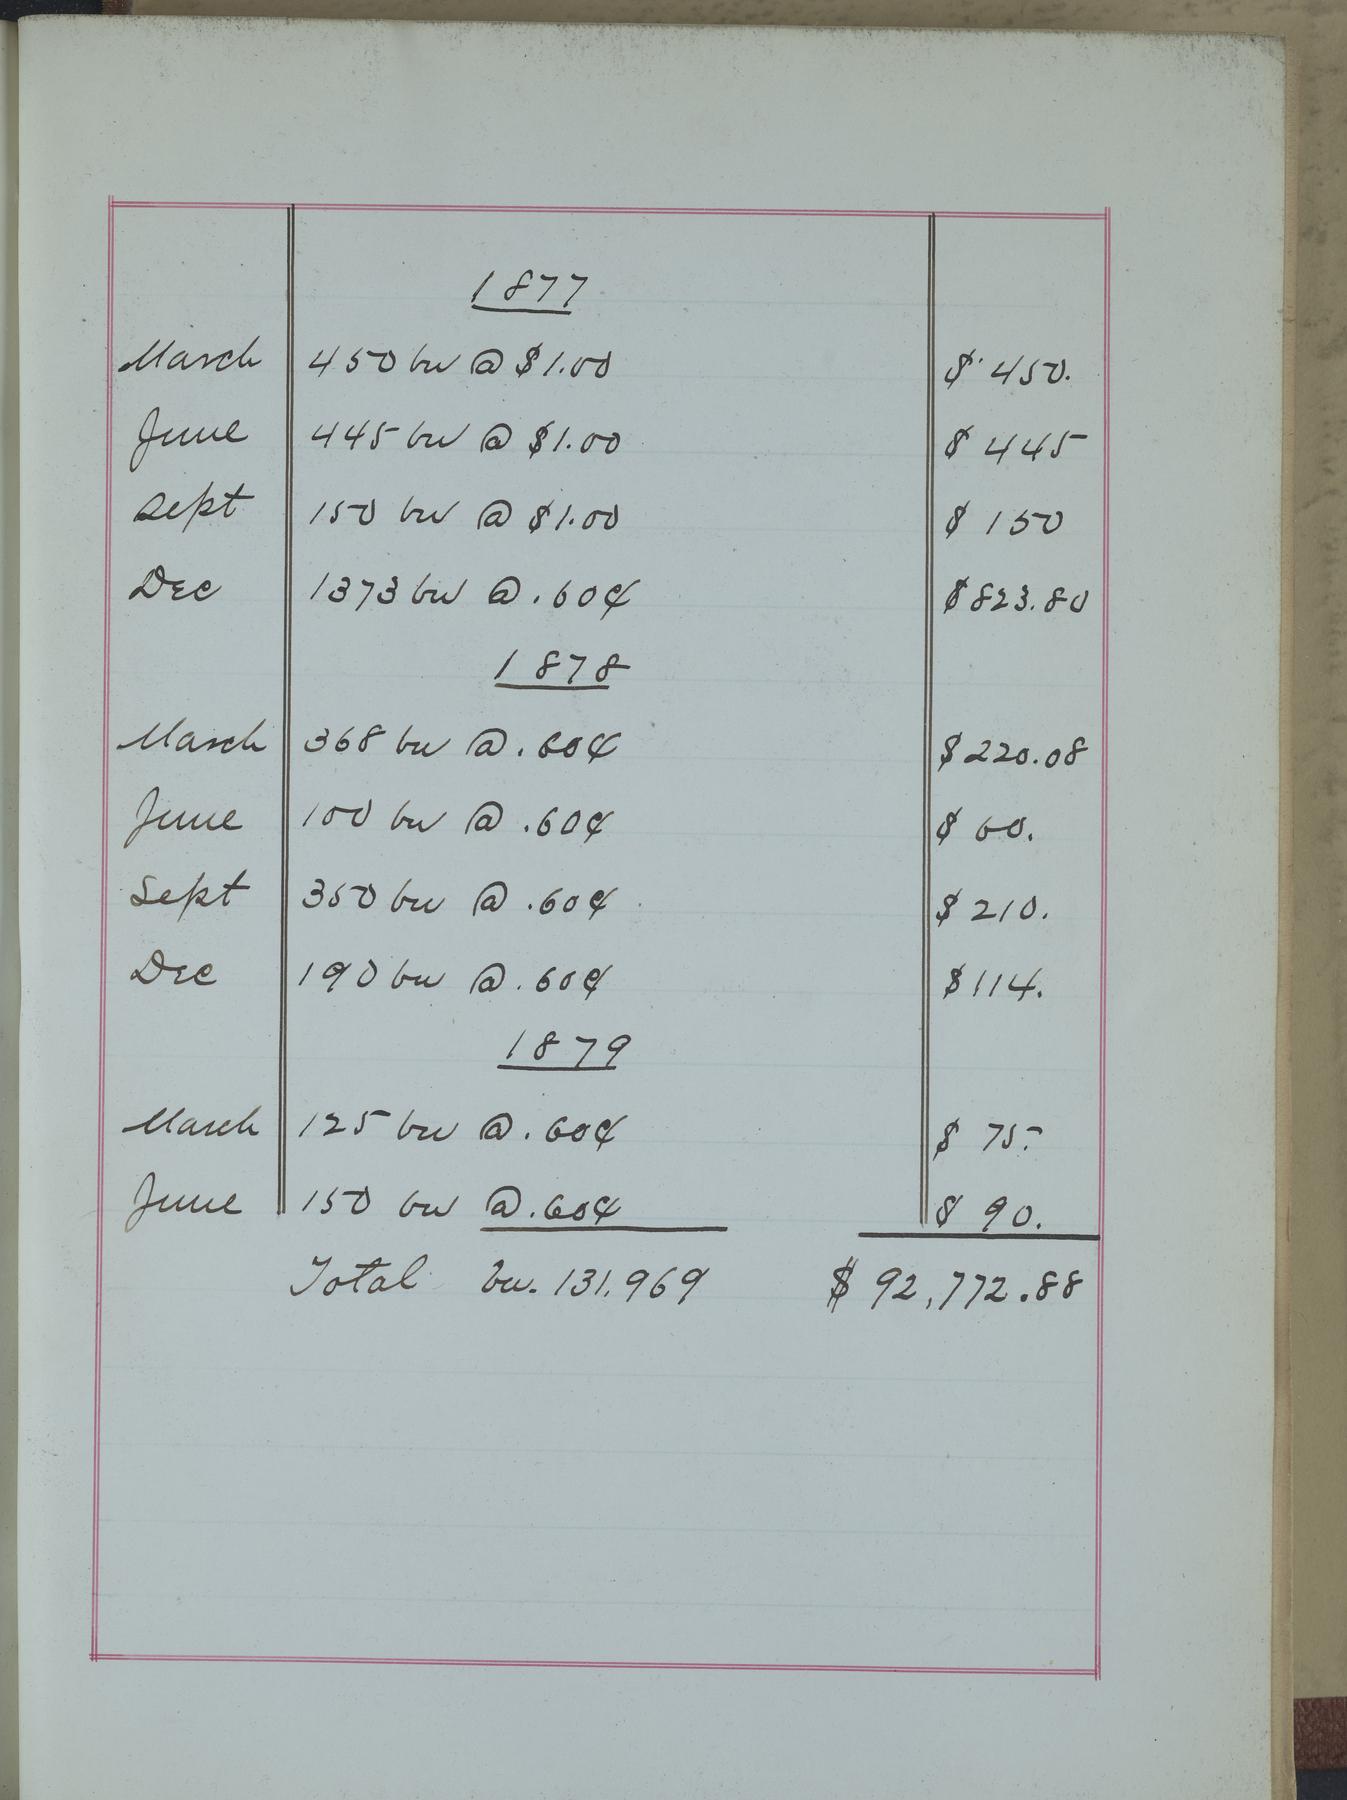 1877
March 450 bu @ $1.00 $450.
June 445 bu @ $1.00 $445
Sept 150 bu @ $1.00 $150
Dec 1373 bu @ .60¢ $823.80
1878
March 368 bu @ .60¢ $220.08
June 100 bu @ .60¢ $60.
Sept 350 bu @ .60¢ $210.
Dec 190 bu @ .60¢ $114.
1879
March 125 bu @ .60¢ $75.
June 150 bu @ .60¢ $90.
Total bu. 131,969 $92,772.88